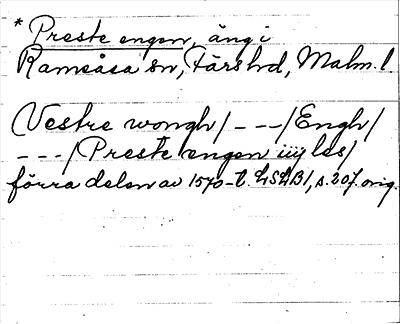 * Preste engen, äng i
Ramsåsa sn, Färs hd, Malm. l.
Vestre wongh/ - - -/Engh/
- - -/Preste engen iiij les/
förra delen av 1570-t. LSLB1, s. 207. orig.